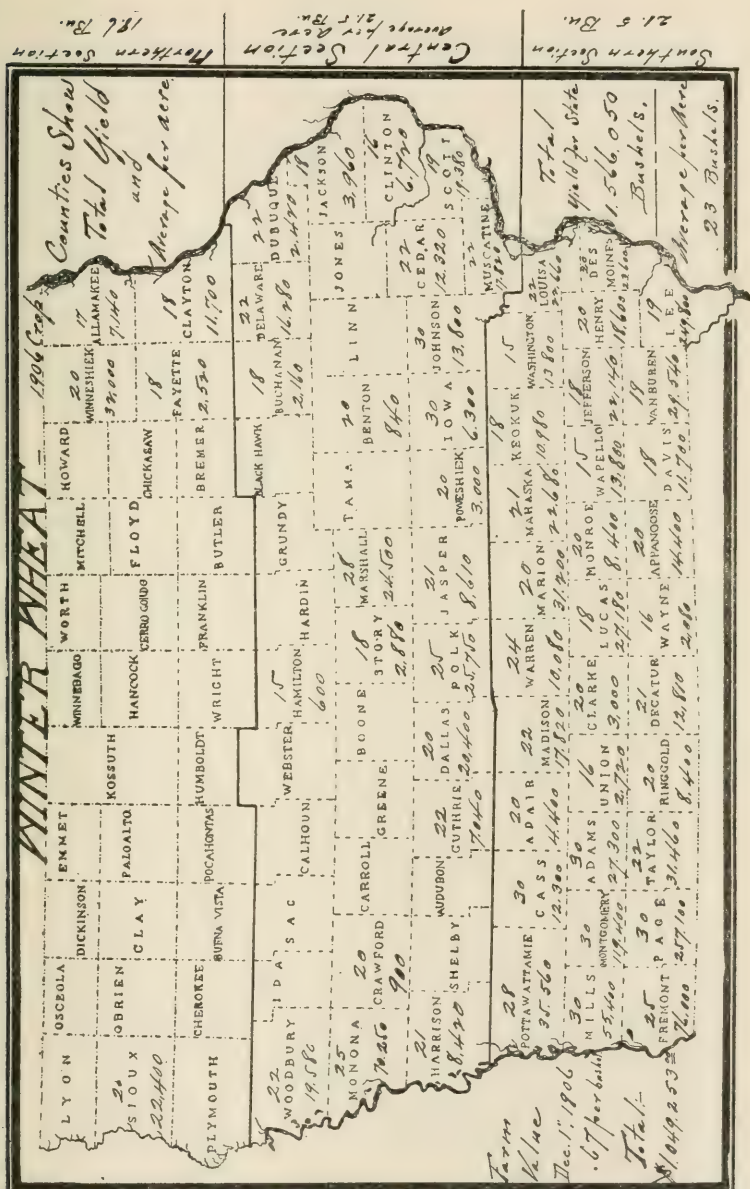 WINTER WHEAT – 1906 Crop
Counties Show
Total Yield
and
Average per Acre
Northern Section
18.6 Bu.
Central Section
average per acre
21.5 Bu.
Southern Section
21.5 Bu.
LYON
OSCEOLA
DICKINSON
EMMET
WINNEBAGO
WORTH
MITCHELL
HOWARD
20
WINNESHIEK
32,000
17
ALLAMAKEE
7,140
20
SIOUX
22,400
OBRIEN
CLAY
PALO ALTO
KOSSUTH
HANCOCK
CERRO GORDO
FLOYD
CHICKASAW
18
FAYETTE
2,520
18
CLAYTON
11,700
PLYMOUTH
CHEROKEE
BUENA VISTA
POCAHONTAS
HUMBOLDT
WRIGHT
FRANKLIN
BUTLER
BREMER
22
WOODBURY
19,580
IDA
SAC
CALHOUN
WEBSTER
15
HAMILTON
600
HARDIN
GRUNDY
BLACK HAWK
18
BUCHANAN
2,160
22
DELAWARE
16,280
22
DUBUQUE
2,420
25
MONONA
70,250
20
CRAWFORD
900
CARROLL
GREENE
BOONE
18
STORY
2,880
28
MARSHALL
24,500
TAMA
20
BENTON
840
LINN
JONES
18
JACKSON
3,960
16
CLINTON
6,720
21
HARRISON
8,420
SHELBY
AUDUBON
22
GUTHRIE
7,040
20
DALLAS
20,400
25
POLK
25,750
21
JASPER
8,610
20
POWESHIEK
3,000
30
IOWA
6,300
30
JOHNSON
13,800
22
CEDAR
12,320
19
SCOTT
19,380
22
MUSCATINE
17,820
28
POTTAWATTAMIE
35,560
30
CASS
12,300
20
ADAIR
4,400
22
MADISON
17,820
24
WARREN
10,080
20
MARION
31,200
21
MAHASKA
22,680
18
KEOKUK
10,980
15
WASHINGTON
13,800
22
LOUISA
22,660
30
MILLS
55,400
30
MONTGOMERY
119,400
30
ADAMS
27,300
16
UNION
2,720
20
CLARKE
3,000
18
LUCAS
27,180
20
MONROE
8,400
15
WAPELLO
13,800
18
JEFFERSON
22,140
20
HENRY
18,600
20
DES
MOINES
22,600
25
FREMONT
76,000
30
PAGE
257,100
22
TAYLOR
31,460
20
RINGGOLD
8,400
21
DECATUR
12,810
16
WAYNE
2,080
20
APPANOOSE
14,400
18
DAVIS
11,700
19
VAN BUREN
29,540
19
LEE
Farm
Value
Dec. 1st, 1906
.67 per bushel
Total –
$1,049,253
Total
Yield for State
1,566,050
Bushels.
Average per Acre
23 Bushels.